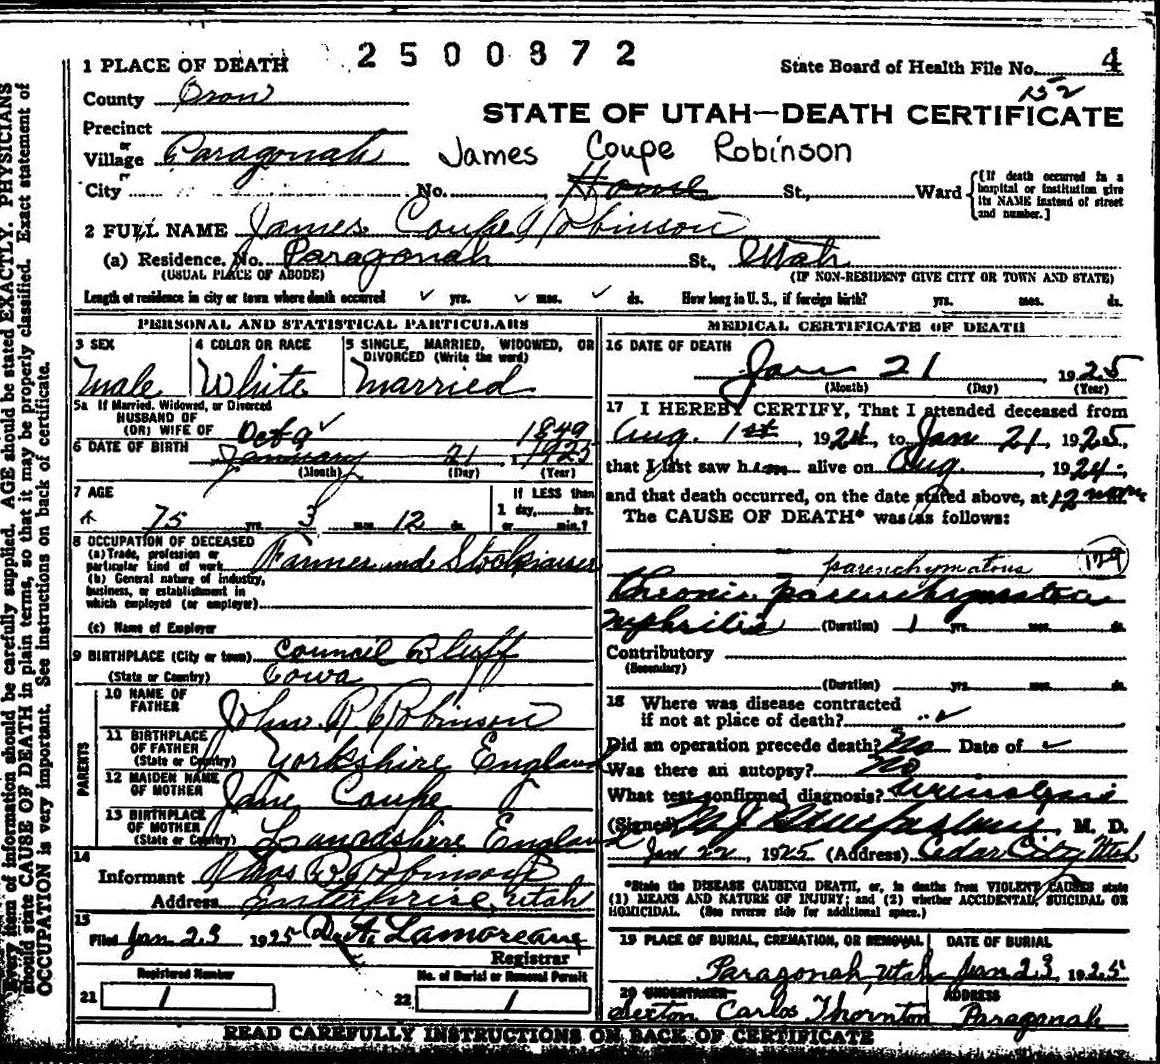 2500872
1 PLACE OF DEATH
State Board of Health File No. 4
152
County Iron
STATE OF UTAH—DEATH CERTIFICATE
Precinct
or
Village Paragonah
James Coupe Robinson
or
City No. Home St., Ward {[If death occurred in a hospital or institution give its NAME instead of street and number.]
2 FULL NAME James Coupe Robinson
(a) Residence, No. Paragonah St., Utah
(USUAL PLACE OF ABODE) (IF NON-RESIDENT GIVE CITY OR TOWN AND STATE)
Length of residence in city or town where death occurred ✓ yrs. ✓ mos. ✓ ds. How long in U. S., if foreign birth? yrs. mos. ds.
PERSONAL AND STATISTICAL PARTICULARS
3 SEX
Male
4 COLOR OR RACE
White
5 SINGLE, MARRIED, WIDOWED, OR
DIVORCED (Write the word)
Married
5a If Married, Widowed, or Divorced
HUSBAND OF
(OR) WIFE OF
6 DATE OF BIRTH
Oct 9 ✓ 1849
January 21 1925
(Month) (Day) (Year)
7 AGE
75 yrs. 3 mos. 12 ds.
If LESS than
1 day, hrs.
or min.?
8 OCCUPATION OF DECEASED
(a) Trade, profession or
particular kind of work Farmer and Stockraiser
(b) General nature of industry,
business, or establishment in
which employed (or employer)
(c) Name of Employer
9 BIRTHPLACE (City or town) Council Bluff
(State or Country) Iowa
PARENTS
10 NAME OF
FATHER John R. Robinson
11 BIRTHPLACE
OF FATHER
(State or Country) Yorkshire England
12 MAIDEN NAME
OF MOTHER Jane Coupe
13 BIRTHPLACE
OF MOTHER
(State or Country) Lancashire England
14
Informant Robinson
Address Enterprise, Utah
15
Filed Jan 23 1925 Lamoreaux
Registrar
Registered Number
21 1
No. of Burial or Removal Permit
22 1
MEDICAL CERTIFICATE OF DEATH
16 DATE OF DEATH
Jan 21 1925
(Month) (Day) (Year)
17 I HEREBY CERTIFY, That I attended deceased from
Aug. 1st, 1924, to Jan 21, 1925,
that I last saw him alive on Aug. 1924,
and that death occurred, on the date stated above, at 12
The CAUSE OF DEATH* was as follows:
parenchymatous 129
Chronic parenchymatous
nephritis (Duration) 1 yrs. mos. ds.
Contributory
(Secondary)
(Duration) yrs. mos. ds.
18 Where was disease contracted
if not at place of death? ✓
Did an operation precede death? No Date of ✓
Was there an autopsy? No
What test confirmed diagnosis? urinalysis
(Signed) Macfarlane M. D.
Jan 22, 1925 (Address) Cedar City Utah
*State the DISEASE CAUSING DEATH, or, in deaths from VIOLENT CAUSES state
(1) MEANS AND NATURE OF INJURY; and (2) whether ACCIDENTAL, SUICIDAL OR
HOMICIDAL. (See reverse side for additional space.)
19 PLACE OF BURIAL, CREMATION, OR REMOVAL
Paragonah, Utah
DATE OF BURIAL
Jan 23 1925
20 UNDERTAKER
Sexton Carlos Thornton
ADDRESS
Paragonah
READ CAREFULLY INSTRUCTIONS ON BACK OF CERTIFICATE
Every item of information should be carefully supplied. AGE should be stated EXACTLY. PHYSICIANS
should state CAUSE OF DEATH in plain terms, so that it may be properly classified. Exact statement of
OCCUPATION is very important. See instructions on back of certificate.